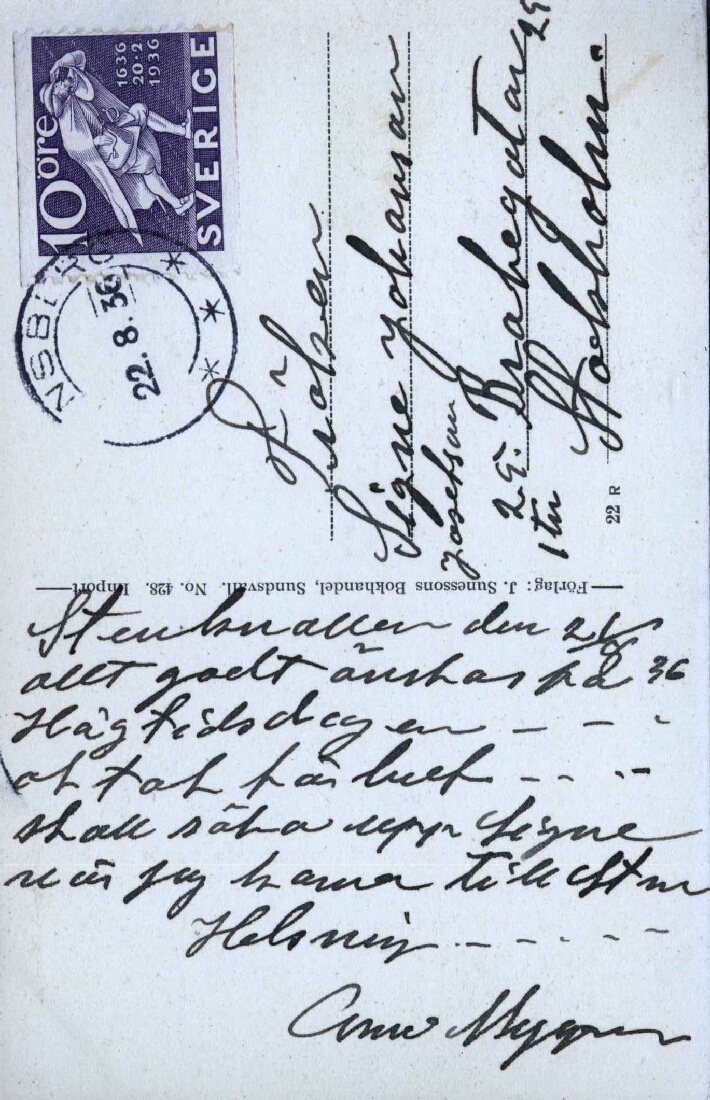 10 öre
1636
20·2
1936
SVERIGE
NSB
22.8.36
Fröken
Signe Johanson
Josefson
Brahegatan 29
2 G.
1 tr
Stockholm.
22 R
Förlag: J. Sunessons Bokhandel, Sundsvall. No. 428. Import
den 21/8
allt godt önskas på 36
Högtidsdagen - - -
ok tak för bref - - -
skall söka upp Signe
när jag komer till Sthm
Helsning - - - - -